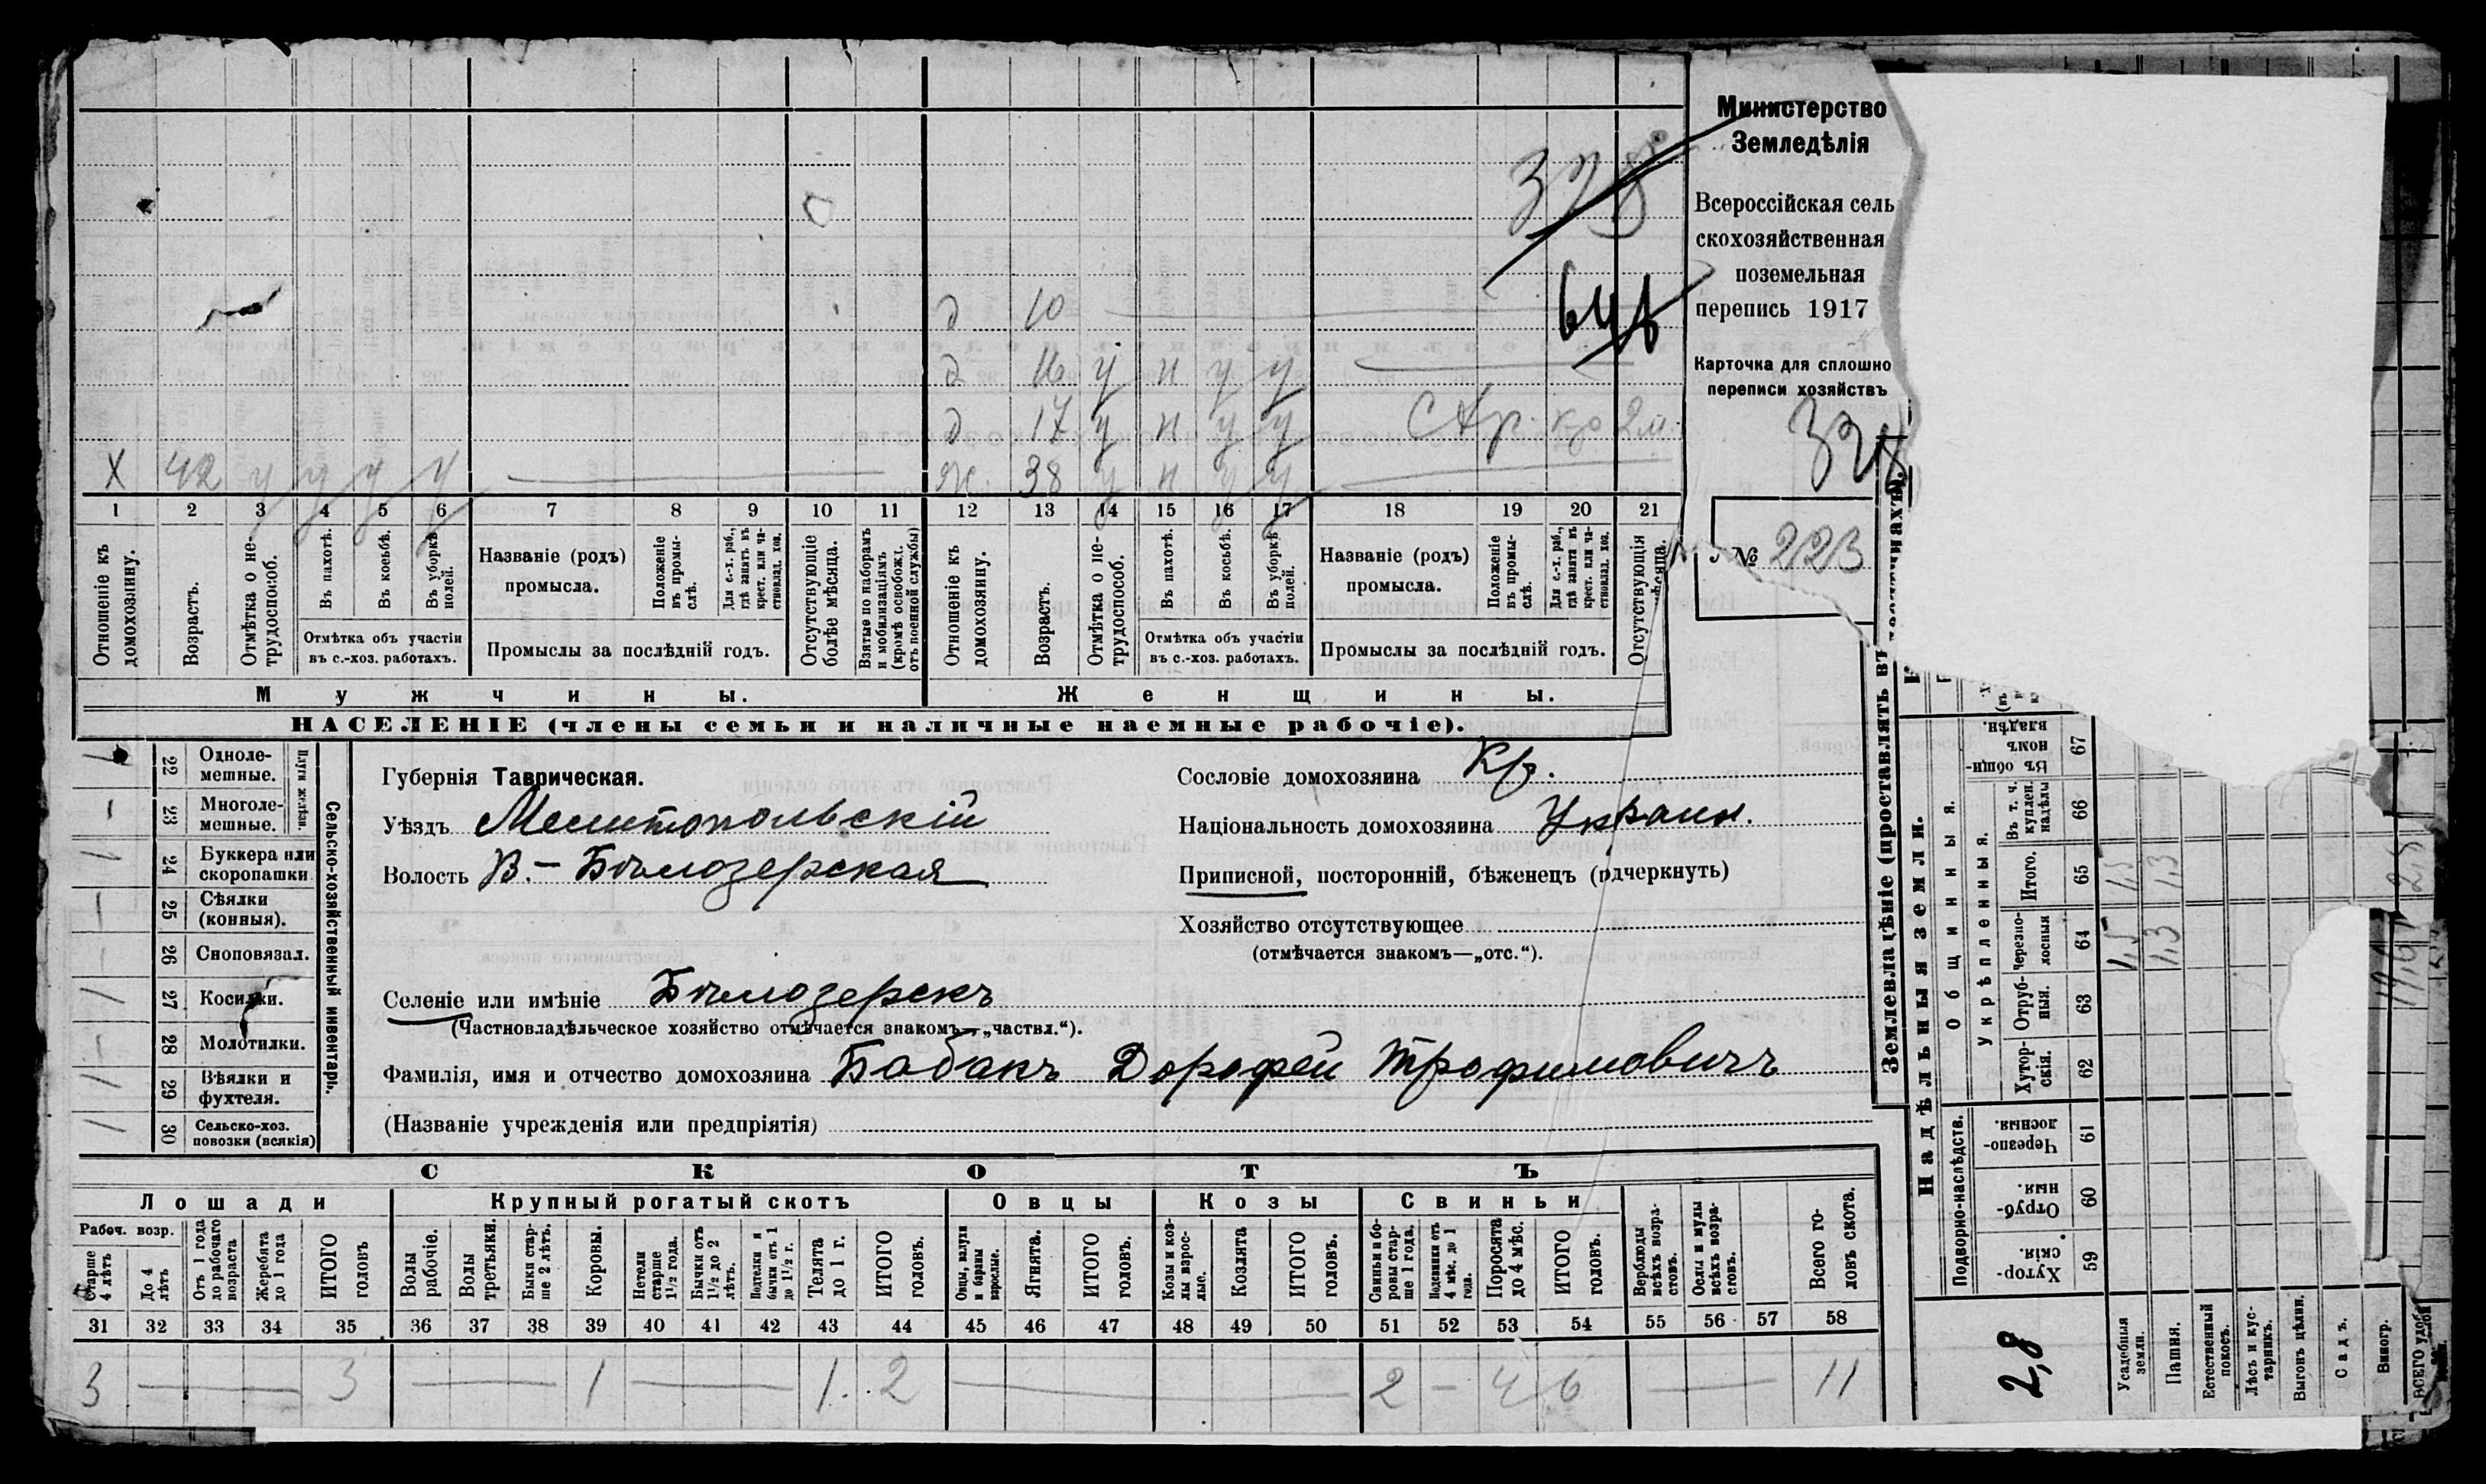 Министерство
Земледѣлія
Всероссійская сель
скохозяйственная
поземельная
перепись 1917
Карточка для сплошно
переписи хозяйствъ
328
№ 223
д 10
д 16 у н у у
д 17 у н у у
Х 42 у у у у
ж 38 у н у у
1 2 3 4 5 6 7 8 9 10 11 12 13 14 15 16 17 18 19 20 21
Отношеніе къ домохозяину.
Возрастъ.
Отмѣтка о не-трудоспособ.
Въ пахотѣ.
Въ косьбѣ.
Въ уборкѣ полей.
Отмѣтка объ участіи
въ с.-хоз. работахъ.
Названіе (родъ)
промысла.
Положеніе въ промы-слѣ.
Для с.-х. раб., гдѣ занятъ въ крест. или ча-стновлад. хоз.
Промыслы за послѣдній годъ.
Отсутствующіе болѣе мѣсяца.
Взятые по наборамъ и мобилизаціямъ (кромѣ освобожд. отъ военной службы)
Отношеніе къ домохозяину.
Возрастъ.
Отмѣтка о не-трудоспособ.
Въ пахотѣ.
Въ косьбѣ.
Въ уборкѣ полей.
Отмѣтка объ участіи
въ с.-хоз. работахъ.
Названіе (родъ)
промысла.
Положеніе въ промы-слѣ.
Для с.-х. раб., гдѣ занята въ крест. или ча-стновлад. хоз.
Промыслы за послѣдній годъ.
Отсутствующія
Мужчины.
Женщины.
НАСЕЛЕНІЕ (члены семьи и наличные наемные рабочіе).
22 Одноле-мешные.
23 Многоле-мешные.
Плуги желѣзн.
24 Буккера или скоропашки
25 Сѣялки (конныя).
26 Сноповязал.
27 Косилки.
28 Молотилки.
29 Вѣялки и фухтеля.
30 Сельско-хоз. повозки (всякія)
Сельско-хозяйственный инвентарь.
Губернія Таврическая.
Уѣздъ Мелитопольскій
Волость В.-Бѣлозерская
Селеніе или имѣніе Бѣлозерскъ
(Частновладѣльческое хозяйство отмѣчается знакомъ—„частвл.“).
Фамилія, имя и отчество домохозяина Бабакъ Дорофей Трофимовичъ
(Названіе учрежденія или предпріятія)
Сословіе домохозяина Кр.
Національность домохозяина Украин.
Приписной, посторонній, бѣженецъ (подчеркнуть)
Хозяйство отсутствующее
(отмѣчается знакомъ—„отс.“).
СКОТЪ
Лошади
Крупный рогатый скотъ
Овцы
Козы
Свиньи
Рабоч. возр.
Старше 4 лѣтъ
До 4 лѣтъ
Отъ 1 года до рабочаго возраста
Жеребята до 1 года
ИТОГО головъ
Волы рабочіе.
Волы третьяки.
Быки стар-ше 2 лѣтъ.
Коровы.
Нетели старше 1½ года.
Бычки отъ 1½ до 2 лѣтъ.
Подтелки и бычки отъ 1 до 1½ г.
Телята до 1 г.
ИТОГО головъ.
Овцы, валухи и бараны взрослые.
Ягнята.
ИТОГО головъ.
Козы и коз-лы взрос-лые.
Козлята
ИТОГО головъ.
Свиньи и бо-ровы стар-ше 1 года.
Подсвинки отъ 4 мѣс. до 1 года.
Поросята до 4 мѣс.
ИТОГО головъ.
Верблюды всѣхъ возра-стовъ.
Ослы и мулы всѣхъ возра-стовъ.
Всего го-ловъ скота.
31 32 33 34 35 36 37 38 39 40 41 42 43 44 45 46 47 48 49 50 51 52 53 54 55 56 57 58
3 — 3 — 1 — 1 2 — 2 — 4 6 — 11
Землевладѣніе (проставлять въ
Надѣльныя земли.
Общинныя.
Укрѣпленныя.
Подворно-наслѣдств.
Въ общин-номъ владѣн. 67
Въ т. ч. куплен. надѣлы 66
Итого. 65
Черезпо-лосныя 64
Отруб-ныя. 63
Хутор-скія. 62
Черезпо-лосныя. 61
Отруб-ныя. 60
Хутор-скія. 59
1,5 1,5
1,3 1,3
2,8
Усадебныя земли.
Пашня.
Естественный покосъ.
Лѣсъ и кус-тарникъ.
Выгонъ цѣлин.
Садъ.
Виногр.
ВСЕГО удоб